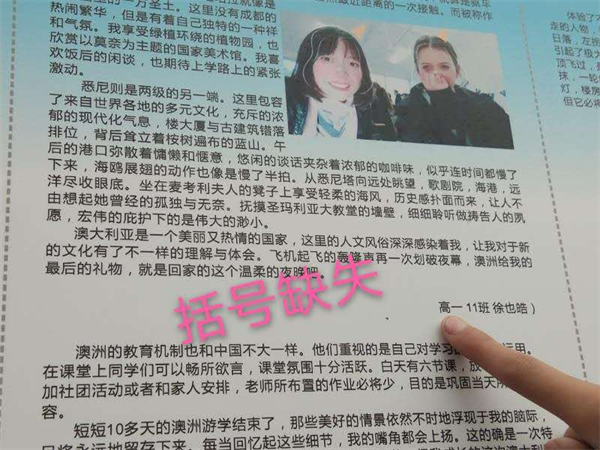 热闹繁华，但是有着自己独特的一种祥
和气氛。我享受绿植环绕的植物园，也
欣赏以莫奈为主题的国家美术馆。我喜
欢饭后的闲谈，也期待上学路上的紧张
激动。
悉尼则是两级的另一端。这里包容
了来自世界各地的多元文化，充斥的浓
郁的现代化气息，楼大厦与古建筑错落
排位，背后耸立着桉树遍布的蓝山。午
后的港口弥散着慵懒和惬意，悠闲的谈话夹杂着浓郁的咖啡味，似乎连时间都慢了
下来，海鸥展翅的动作也像是慢了半拍。从悉尼塔向远处眺望，歌剧院，海港，远
洋尽收眼底。坐在麦考利夫人的凳子上享受轻柔的海风，历史感扑面而来，让人不
由想起她曾经的孤独与无奈。抚摸圣玛利亚大教堂的墙壁，细细聆听做祷告人的夙
愿，宏伟的庇护下的是伟大的渺小。
澳大利亚是一个美丽又热情的国家，这里的人文风俗深深感染着我，让我对于新
的文化有了不一样的理解与体会。飞机起飞的轰隆声再一次划破夜幕，澳洲给我的
最后的礼物，就是回家的这个温柔的夜晚吧。
括号缺失
高一 11班 徐也皓）
澳洲的教育机制也和中国不大一样。他们重视的是自己对学习的 运用。
在课堂上同学们可以畅所欲言，课堂氛围十分活跃。白天有六节课，放
加社团活动或者和家人安排，老师所布置的作业必将少，目的是巩固当天所
容。
短短10多天的澳洲游学结束了，那些美好的情景依然不时地浮现于我的脑际，
每当回忆起这些细节，我的嘴角都会上扬。这的确是一次特
体验了
走的人物，
日落，左拐
引起了级大
顶飞过，
抹，一轮
灯，楼房
但它必将